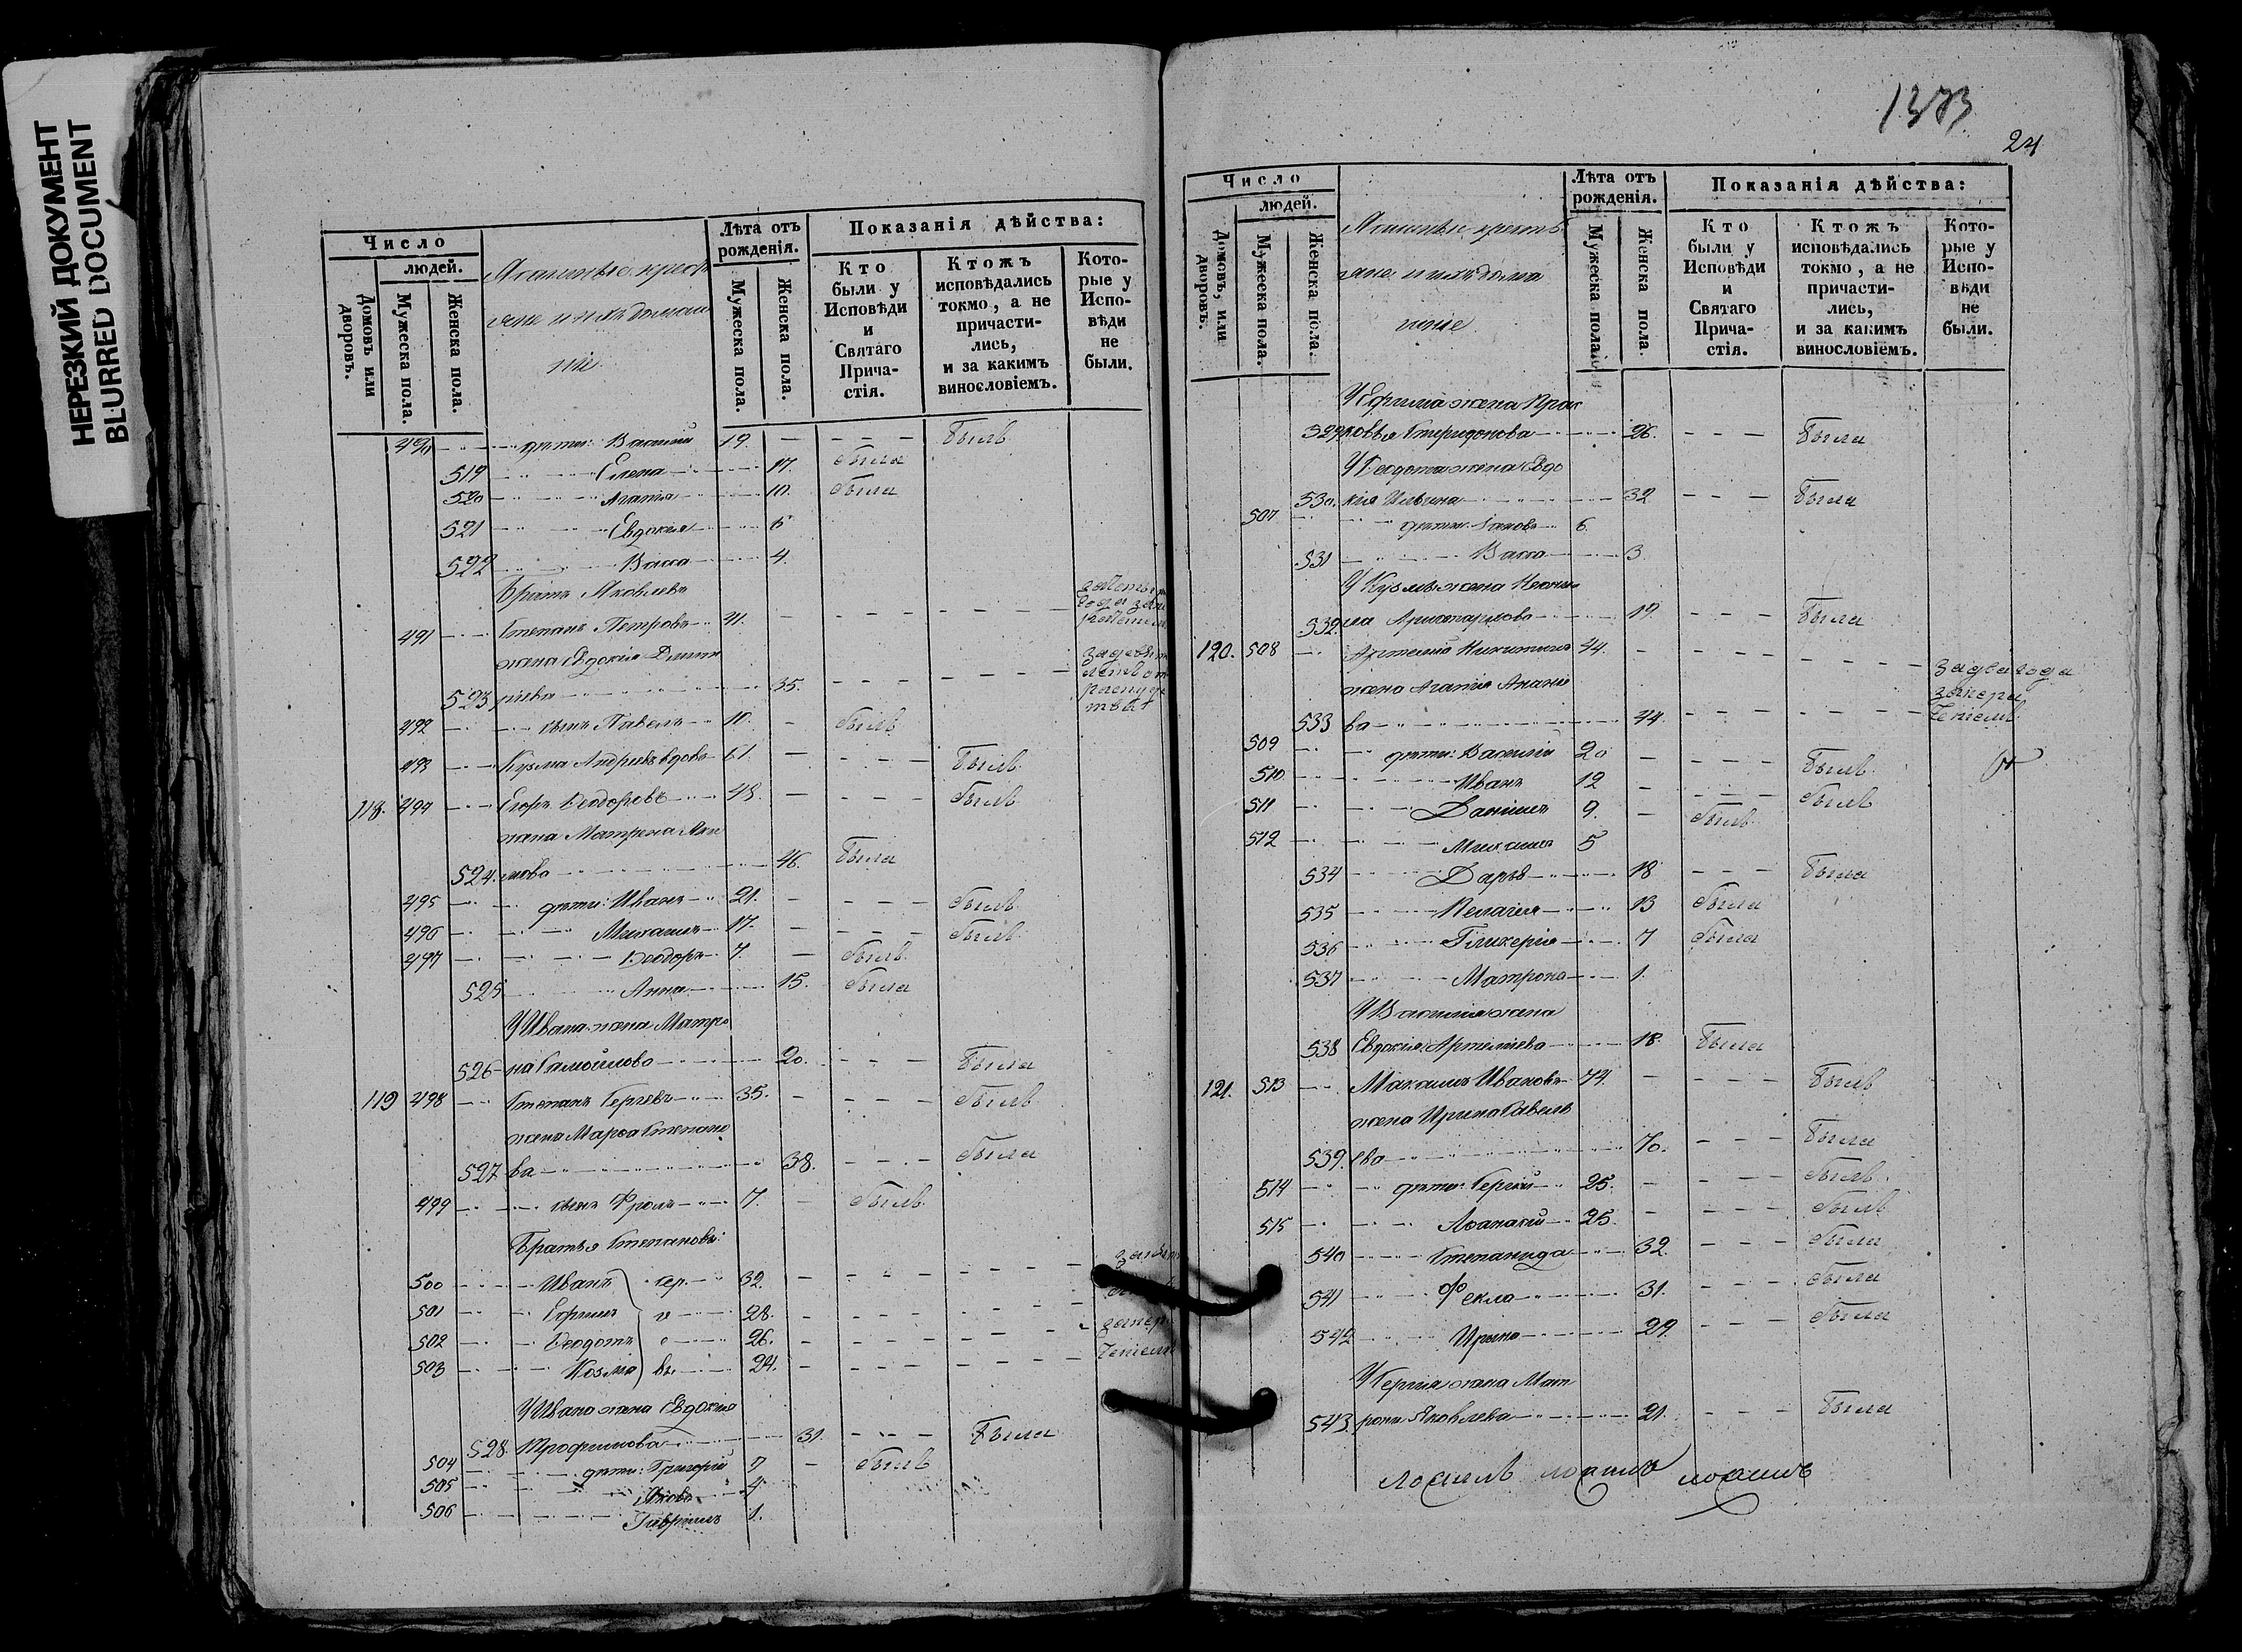 НЕРЕЗКИЙ ДОКУМЕНТ
BLURRED DOCUMENT
Число
людей.
Домовъ или дворовъ.
Мужеска пола.
Женска пола.
Лѣта отъ рожденія.
Мужеска пола.
Женска пола.
Показанія дѣйства:
Кто были у Исповѣди и Святаго Прича-стія.
Ктожъ исповѣдались токмо, а не причасти-лись, и за какимъ винословіемъ.
Кото-рые у Испо-вѣди не были.
490 дѣти: Василій 19. Былъ
519 Елена 17. была
520 Агапія 10. была
521 Евдокія 6
522 Васса 4.
Братъ Яковлевъ
491 Степанъ Петровъ 41.
жена Евдокія Дмит
523 ріева 35.
492 сынъ Павелъ 10. былъ
493 Кузма Андреевъ вдовъ 61. Былъ
118. 494 Егоръ Ѳеодоровъ 48. былъ
жена Матрена Аки
524. мова 46. Была
495 дѣти: Иванъ 21. былъ
496 Михаилъ 17. былъ
497 Ѳеодоръ 7. былъ
525 Анна 15. была
У Ивана жена Матре
526 на Самойлова 20. Была
119 498 Степанъ Сергѣевъ 35. былъ
жена Марѳа Степано
527 ва 38. была
499 сынъ Фролъ 7. былъ
Братья Степановы
500 Иванъ 32.
501 Ефимъ 28.
502 Ѳеодотъ 26.
503 Козма 24.
У Ивана жена Евдокія
528 Трофимова 31. Была
504 дѣти: Григорій 7 былъ
505 Яковъ 4
506 Гавріилъ 1.
1373
24
Число
людей.
Домовъ, или дворовъ.
Мужеска пола.
Женска пола.
Лѣта отъ рожденія.
Мужеска пола.
Женска пола.
Показанія дѣйства:
Кто были у Исповѣди и Святаго Прича-стія.
Ктожъ исповѣдались токмо, а не причасти-лись, и за какимъ винословіемъ.
Кото-рые у Испо-вѣди не были.
У Ефима жена Прас
529 ковья Спиридонова 26. Была
У Ѳеодота жена Евдо
530. кія Ильина 32 Была
507 дѣти: Яковъ 6.
531 Васса 3
У Кузмы жена
532. Аристархова 19. Была
120. 508 Артемій Никитинъ 44.
жена Агапія Ананіе
533 ва 44. за два года
509 дѣти: Василій 20 Былъ
510 Иванъ 12 былъ
511 Даніилъ 9. былъ
512 Михаилъ 5
534 Дарья 18 Была
535 Пелагія 13 была
536 Гликерія 7 была
537 Матрона 1.
У Василія жена
538 Евдокія Артеміева 18. Была
121. 513 Михаилъ Ивановъ 74. Былъ
жена Ирина Савель
539. ева 70. Была
514 дѣти: Сергій 25. былъ
515 Аѳанасій 25. былъ
540 Степанида 32. была
541 Фекла 31. была
542 Ирина 29. была
У Сергія жена Мат
543. рона Яковлева 21. Была